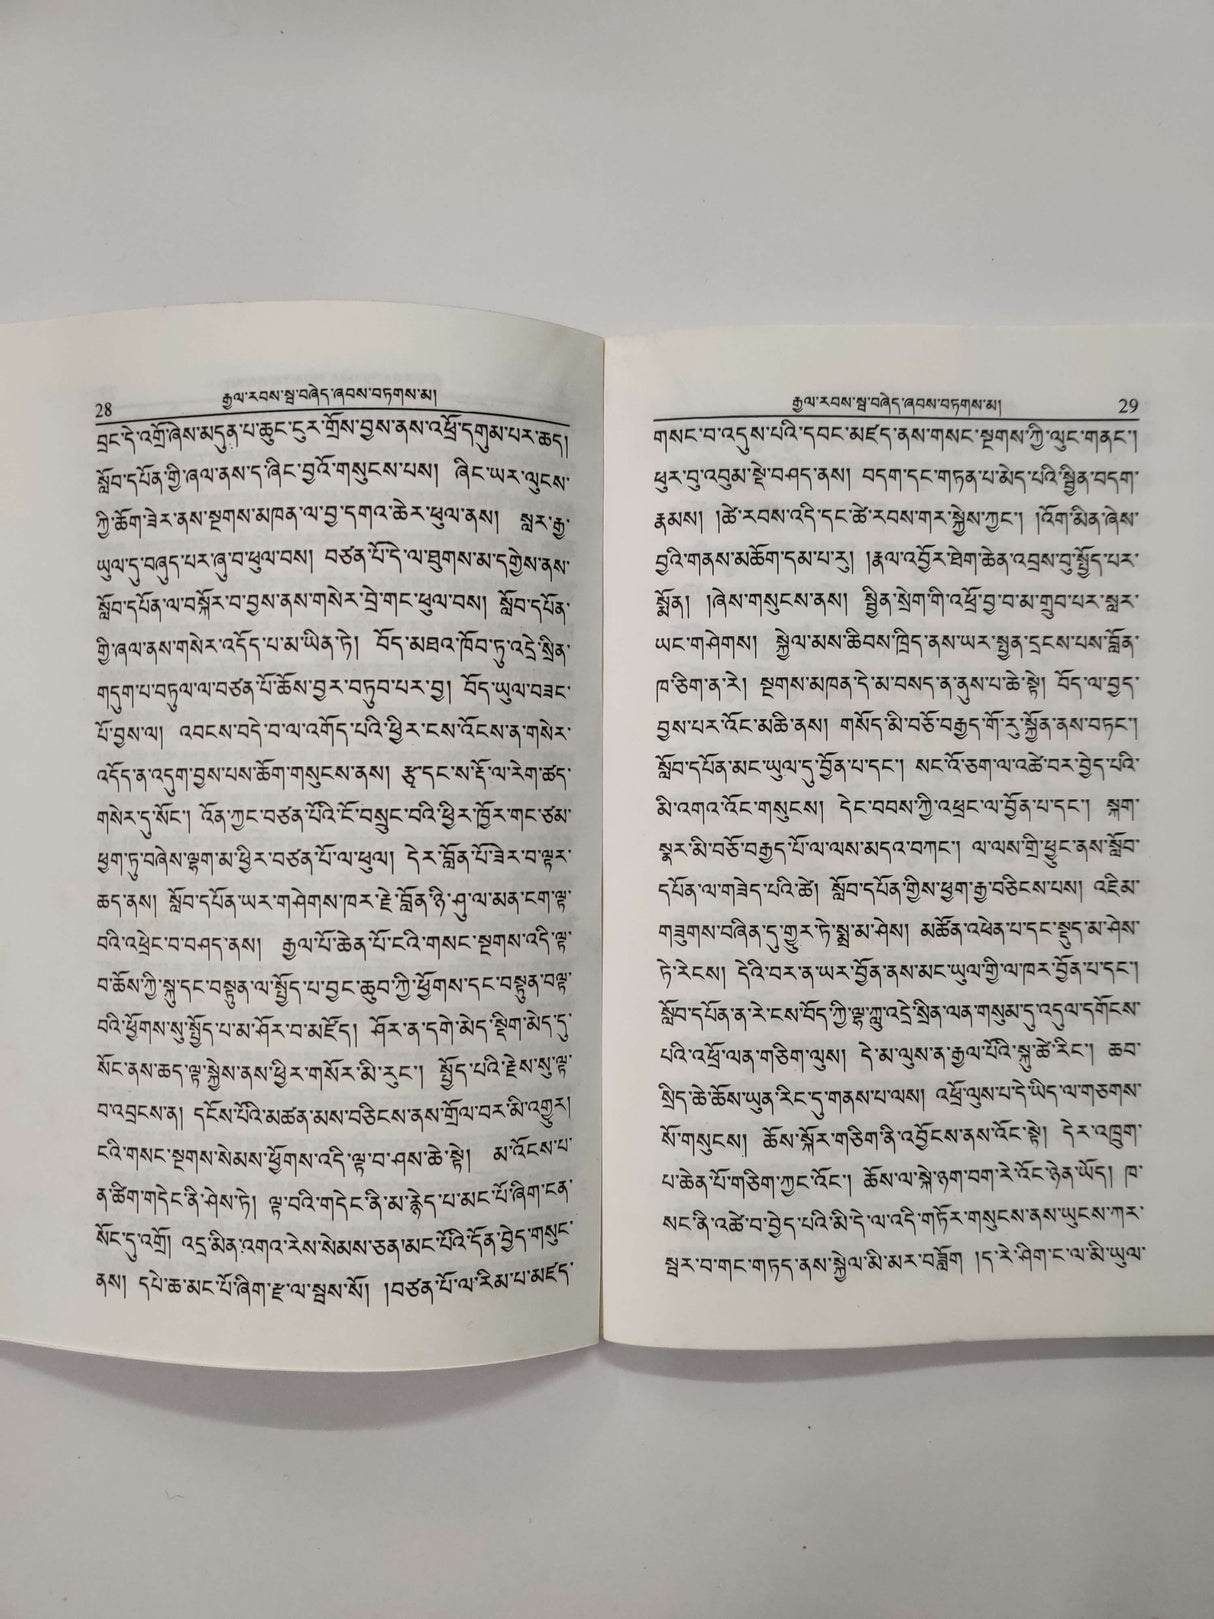 28
རྒྱལ་རབས་སྦ་བཞེད་ཞབས་བཏགས་མ།
བྲང་དེ་འགྲོ་ཞེས་མདུན་པ་ཆུང་ངུར་གྲོས་བྱས་ནས་འཕྲོ་དགུམ་པར་ཆད།
སློབ་དཔོན་གྱི་ཞལ་ནས་ད་ཞིང་བྱའོ་གསུངས་པས། ཞིང་ཡར་ལུངས་
ཀྱི་ཆོག་ཟེར་ནས་སྔགས་མཁན་ལ་བྱ་དགའ་ཆེར་ཕུལ་ནས། སླར་རྒྱ་
ཡུལ་དུ་བཞུད་པར་ཞུ་བ་ཕུལ་བས། བཙན་པོ་དེ་ལ་ཐུགས་མ་དགྱེས་ནས་
སློབ་དཔོན་ལ་བསྐོར་བ་བྱས་ནས་གསེར་བྲེ་གང་ཕུལ་བས། སློབ་དཔོན་
གྱི་ཞལ་ནས་གསེར་འདོད་པ་མ་ཡིན་ཏེ། བོད་མཐའ་ཁོབ་ཏུ་འདྲེ་སྲིན་
གདུག་པ་བཏུལ་ལ་བཙན་པོ་ཆོས་བྱར་བཏུབ་པར་བྱ། བོད་ཡུལ་བཟང་
པོ་བྱས་ལ། འབངས་བདེ་བ་ལ་འགོད་པའི་ཕྱིར་ངས་འོངས་ན་གསེར་
འདོད་ན་འདུག་བྱས་པས་ཆོག་གསུངས་ནས། རྩྭ་དང་ས་རྡོ་ལ་རེག་ཚད་
གསེར་དུ་སོང་། འོན་ཀྱང་བཙན་པོའི་ངོ་བསྲུང་བའི་ཕྱིར་ཁྱོར་གང་ཙམ་
ཕྱག་ཏུ་བཞེས་ལྷག་མ་ཕྱིར་བཙན་པོ་ལ་ཕུལ། དེར་བློན་པོ་ཟེར་བ་ལྟར་
ཆད་ནས། སློབ་དཔོན་ཡར་གཤེགས་ཁར་རྗེ་བློན་ཉི་ཤུ་ལ་མན་ངག་ལྟ་
བའི་འཕྲེང་བ་བཤད་ནས། རྒྱལ་པོ་ཆེན་པོ་ངའི་གསང་སྔགས་འདི་ལྟ་
བ་ཆོས་ཀྱི་སྐུ་དང་བསྟུན་ལ་སྤྱོད་པ་བྱང་ཆུབ་ཀྱི་ཕྱོགས་དང་བསྟུན་བལྟ་
བའི་ཕྱོགས་སུ་སྤྱོད་པ་མ་ཤོར་བ་མཛོད། ཤོར་ན་དགེ་མེད་སྡིག་མེད་དུ་
སོང་ནས་ཆད་ལྟ་སྐྱེས་ནས་ཕྱིར་གསོར་མི་རུང་། སྤྱོད་པའི་རྗེས་སུ་ལྟ་
བ་འབྲངས་ན། དངོས་པོའི་མཚན་མས་བཅིངས་ནས་གྲོལ་བར་མི་འགྱུར།
ངའི་གསང་སྔགས་སེམས་ཕྱོགས་འདི་ལྟ་བ་ཤས་ཆེ་སྟེ། མ་འོངས་པ་
ན་ཚིག་གདེང་ནི་ཤེས་ཏེ། ལྟ་བའི་གདེང་ནི་མ་རྙེད་པ་མང་པོ་ཞིག་ངན་
སོང་དུ་འགྲོ། འདྲ་མིན་འགའ་རེས་སེམས་ཅན་མང་པོའི་དོན་བྱེད་གསུང་
ནས། དཔེ་ཆ་མང་པོ་ཞིག་རྫ་ལ་སྦས་སོ། །བཙན་པོ་ལ་རིམ་པ་མཛད་
རྒྱལ་རབས་སྦ་བཞེད་ཞབས་བཏགས་མ།
29
གསང་བ་འདུས་པའི་དབང་མཛད་ནས་གསང་སྔགས་ཀྱི་ལུང་གནང་།
ཕུར་བུ་འབུམ་སྡེ་བཤད་ནས། བདག་དང་གཏན་པ་མེད་པའི་སྦྱིན་བདག་
རྣམས། །ཚེ་རབས་འདི་དང་ཚེ་རབས་གར་སྐྱེས་ཀྱང་། །འོག་མིན་ཞེས་
བྱའི་གནས་མཆོག་དམ་པ་རུ། །རྣལ་འབྱོར་ཐེག་ཆེན་འབྲས་བུ་སྤྱོད་པར་
སྨོན། །ཞེས་གསུངས་ནས། སྦྱིན་སྲེག་གི་འཕྲོ་བྱ་བ་མ་གྲུབ་པར་སླར་
ཡང་གཤེགས། སྐྱེལ་མས་ཆིབས་ཁྲིད་ནས་ཡར་སྤྱན་དྲངས་པས་བློན་
ཁ་ཅིག་ན་རེ། སྔགས་མཁན་དེ་མ་བསད་ན་ནུས་པ་ཆེ་སྟེ། བོད་ལ་བྱད་
བྱས་པར་འོང་མཆི་ནས། གསོད་མི་བཅོ་བརྒྱད་གོ་རུ་སྐྱོན་ནས་བཏང་།
སློབ་དཔོན་མང་ཡུལ་དུ་བྱོན་པ་དང་། སང་འོ་ཅག་ལ་འཚེ་བར་བྱེད་པའི་
མི་འགའ་འོང་གསུངས། དེང་བབས་ཀྱི་འཕྲང་ལ་བྱོན་པ་དང་། སྐག་
སྣར་མི་བཅོ་བརྒྱད་པོ་ལ་ལས་མདའ་བཀང་། ལ་ལས་གྲི་ཕྱུང་ནས་སློབ་
དཔོན་ལ་གཟེད་པའི་ཚེ། སློབ་དཔོན་གྱིས་ཕྱག་རྒྱ་བཅིངས་པས། འཇིམ་
གཟུགས་བཞིན་དུ་གྱུར་ཏེ་སྨྲ་མ་ཤེས། མཚོན་འཕེན་པ་དང་སྡུད་མ་ཤེས་
ཏེ་རེངས། དེའི་བར་ན་ཡར་བྱོན་ནས་མང་ཡུལ་གྱི་ལ་ཁར་བྱོན་པ་དང་།
སློབ་དཔོན་ན་རེ་ངས་བོད་ཀྱི་ལྷ་ཀླུ་འདྲེ་སྲིན་ལན་གསུམ་དུ་འདུལ་དགོངས་
པའི་འཕྲོ་ལན་གཅིག་ལུས། དེ་མ་ལུས་ན་རྒྱལ་པོའི་སྐུ་ཚེ་རིང་། ཆབ་
སྲིད་ཆེ་ཆོས་ཡུན་རིང་དུ་གནས་པ་ལས། འཕྲོ་ལུས་པ་དེ་ཡིད་ལ་གཅགས་
སོ་གསུངས། ཆོས་སྐོར་གཅིག་ནི་འབྱོངས་ནས་འོང་སྟེ། དེར་འཁྲུག་
པ་ཆེན་པོ་གཅིག་ཀྱང་འོང་། ཆོས་ལ་སྐེ་ཉག་བག་རེ་འོང་ཉེན་ཡོད། ཁ་
སང་ནི་འཚེ་བ་བྱེད་པའི་མི་དེ་ལ་འདི་གཏོར་གསུངས་ནས་ཡུངས་ཀར་
སྦར་བ་གང་གཏད་ནས་སྐྱེལ་མི་མར་བཟློག །ད་རེ་ཤིག་ང་ལ་མི་ཡུལ་